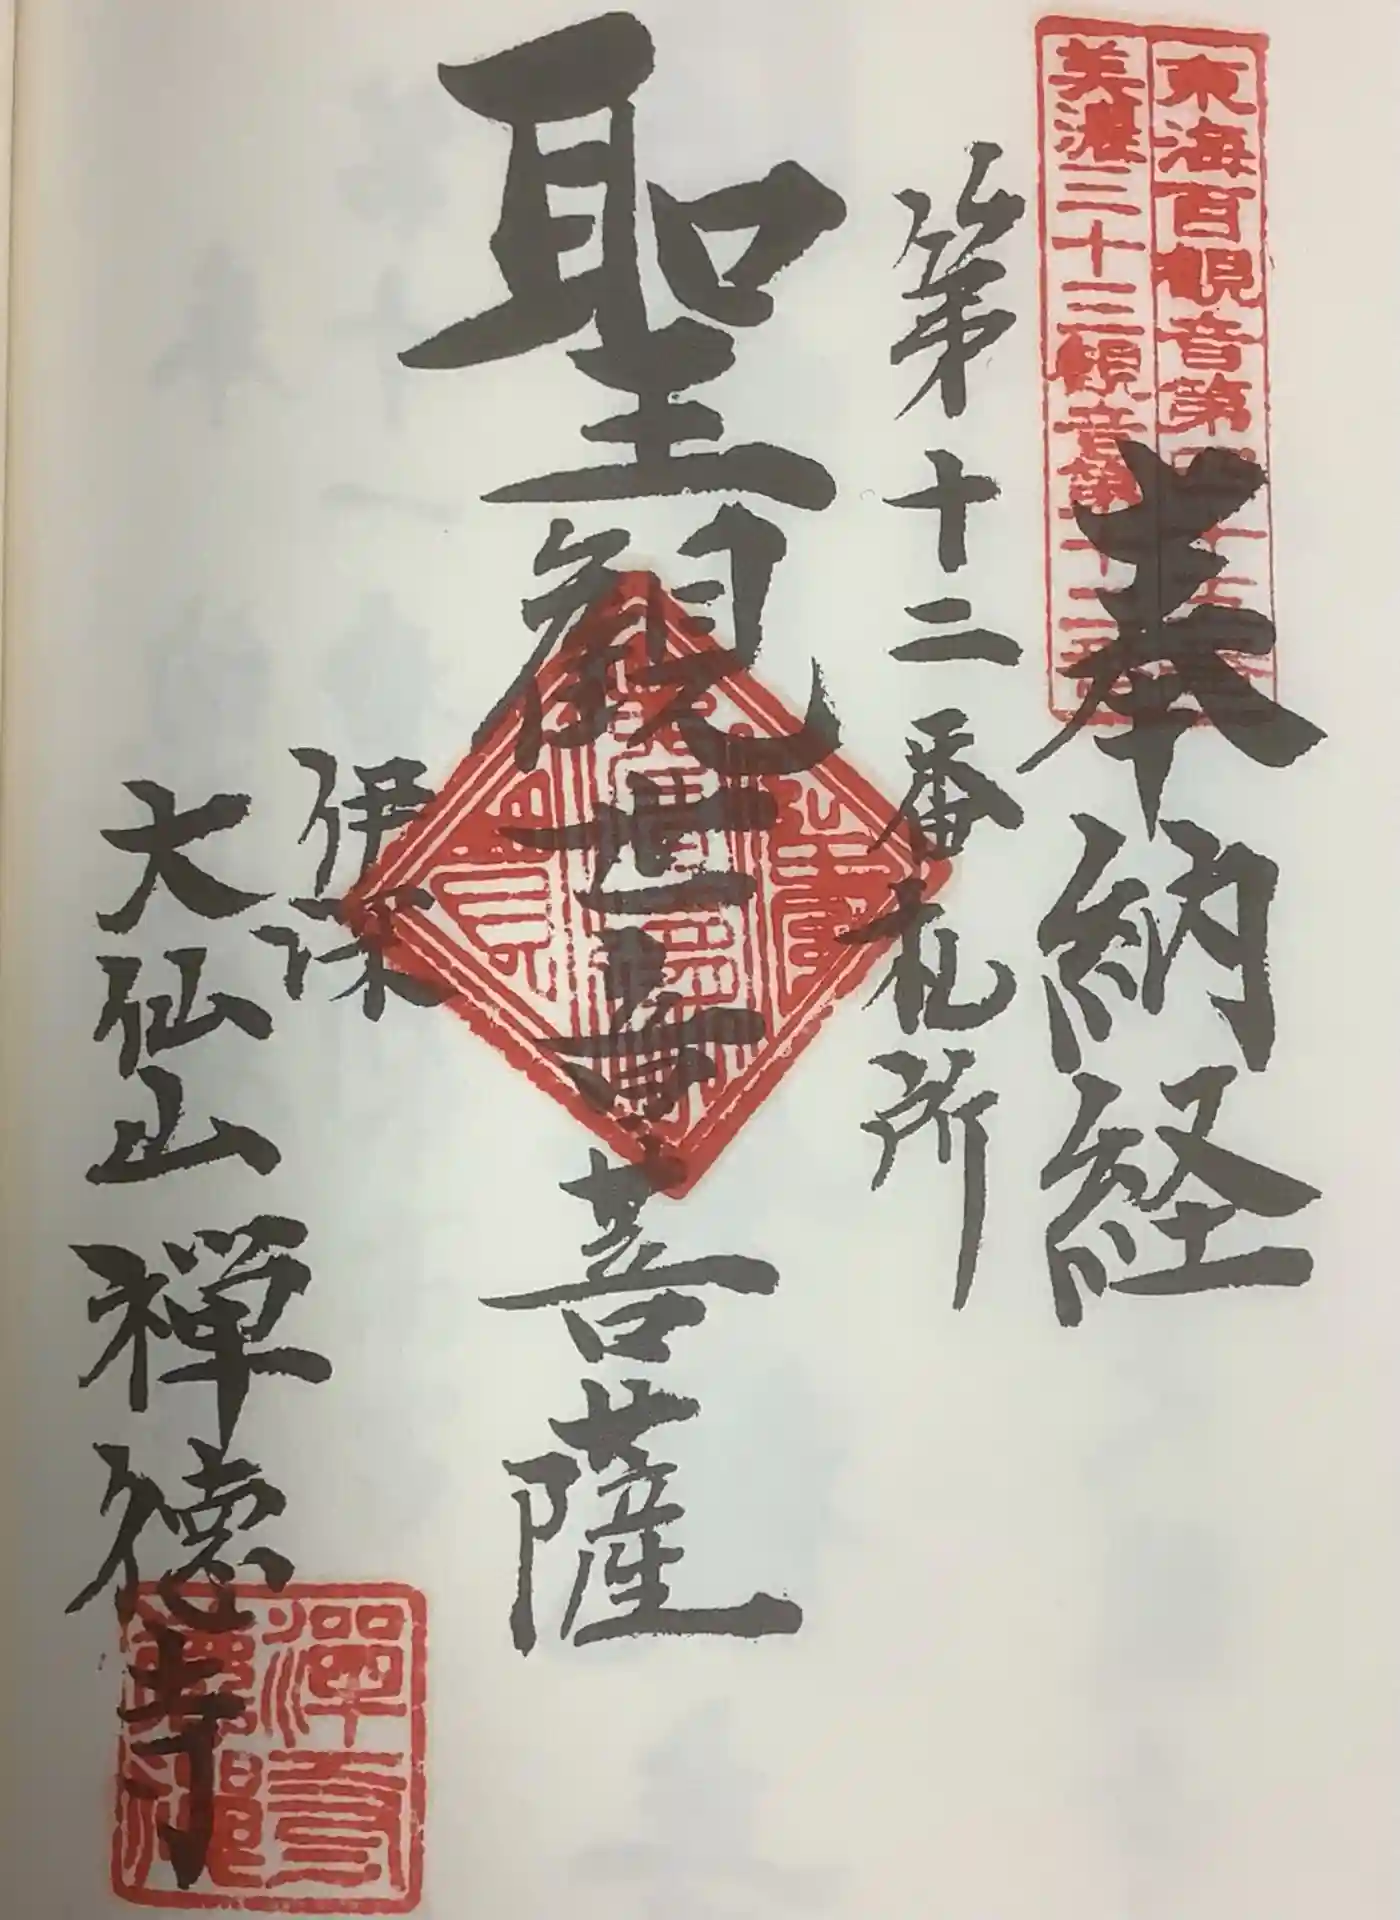 東海百観音第四十五番
美濃三十三観音第十二番
奉納経
第十二番札所
聖観世音菩薩
伊深
大仙山 禅徳寺